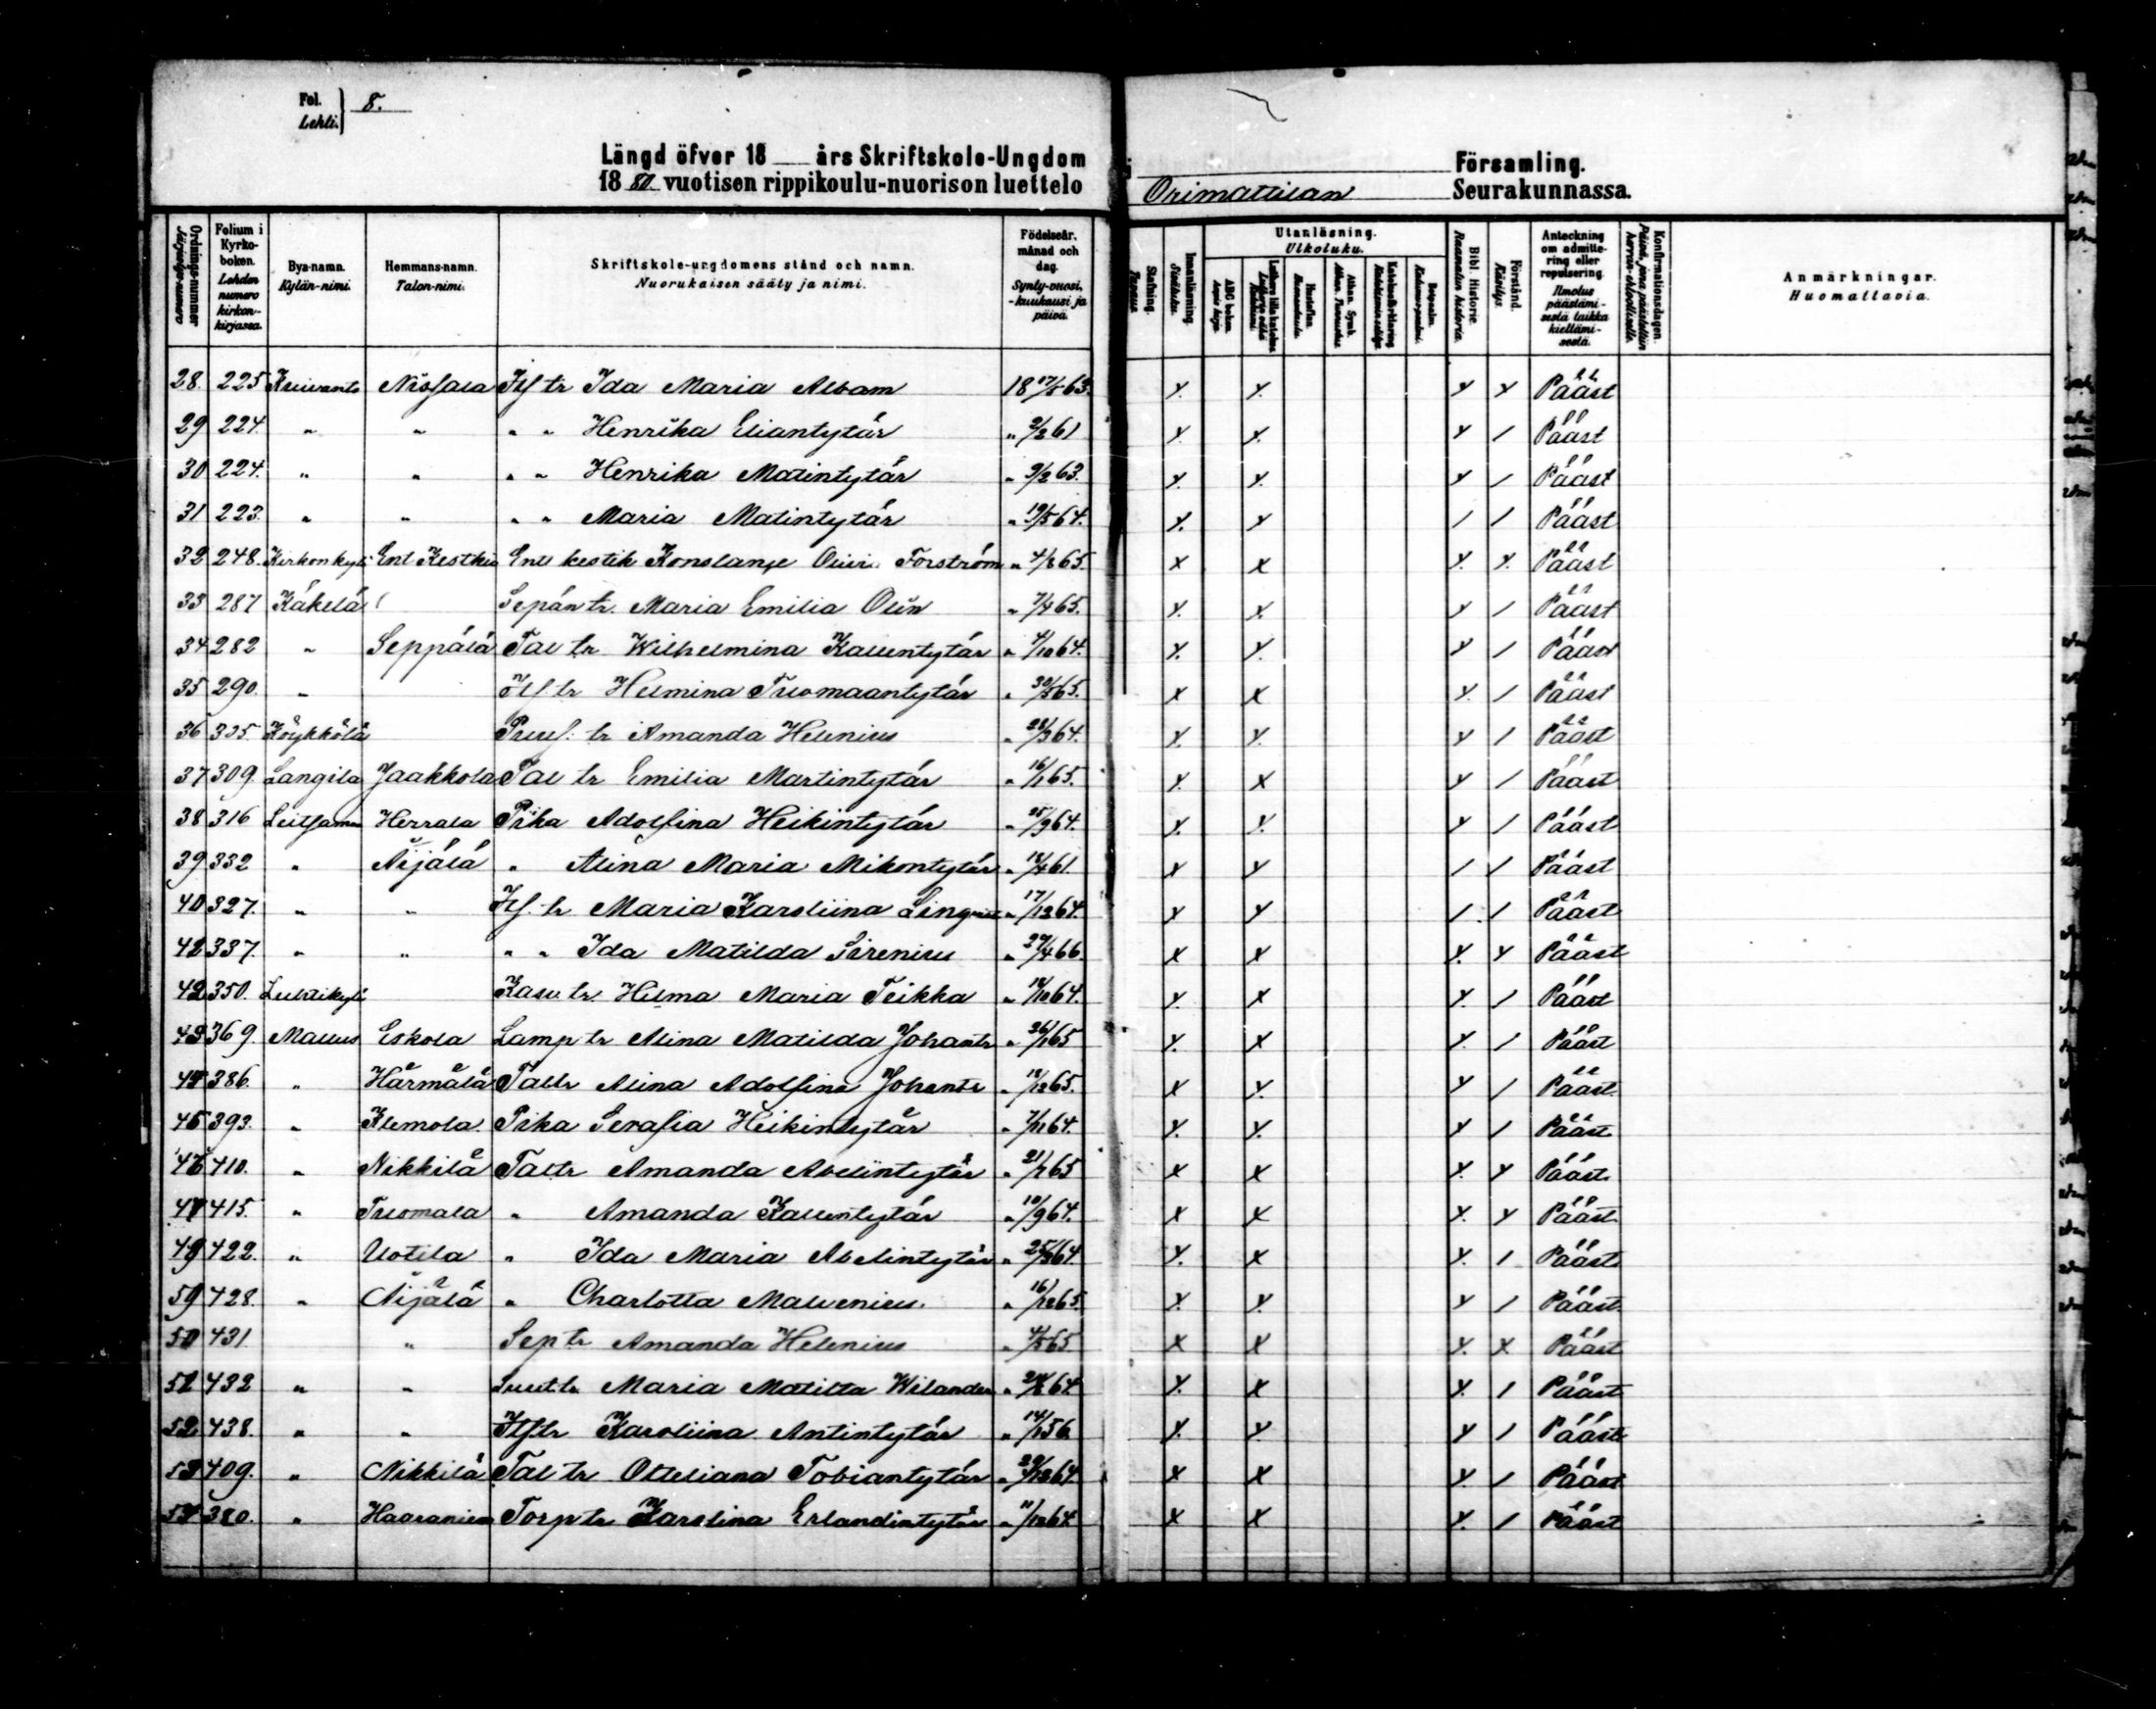 Fol.
Lehti. 8.
Längd öfver 18 års Skriftskole-Ungdom Församling.
18 80 vuotisen rippikoulu-nuorison luettelo Orimattilan Seurakunnassa.
Ordnings-nummer Järjestys-numero
Folium i Kyrko-boken. Lehden numero kirkon-kirjassa.
Bya-namn. Kylän-nimi.
Hemmans-namn. Talon-nimi.
Skriftskole-ungdomens stånd och namn. Nuorukaisen sääty ja nimi.
Födelseår, månad och dag. Synty-vuosi, -kuukausi ja päivä.
Stafning. Tavaus.
Innanläsning. Sisäluku.
Utanläsning. Ulkoluku.
ABC boken. Aapis kirja.
Luthers lilla kateches
Hustaflan. Huoneentaulu.
Athan. Symb. Athan. Tunnustus.
Bibl. Historie. Raamatun historia.
Förstånd. Käsitys.
Anteckning om admittering eller repulsering. Ilmotus päästämisestä taikka kieltämisestä.
Konfirmationsdagen.
Anmärkningar. Huomattavia.
28. 225 Kuivanto Nissala Its. tr Ida Maria Albam 18 17/5 63. x x x x Pääst
29 224. " " " " Henrika Eliantytär " 2/2 61 x x x / Pääst
30 224. " " " " Henrika Matintytär " 9/2 63. x x x / Pääst
31 223. " " " " Maria Matintytär " 19/5 64. x x / / Pääst
32 248. Kirkonkyli Ent Kestki Ent kestik Konstanse Forström " 4/8 65. x x x x Pääst
33 287 Käkelä Sepän tr. Maria Emilia Olin " 7/4 65. x x x / Pääst
34 282 " Seppälä Tal tr Wilhelmina Kallentytär " 4/10 64. x x x / Pääst
35 290. " Its. tr Helmina Tuomaantytär " 30/5 65. x x x / Pääst
36 335 Köykkölä Puus. tr Amanda Helenius " 28/3 64. x x x / Pääst
37 309. Langila Jaakkola Tal tr Emilia Martintytär " 16/1 65. x x x / Pääst
38 316 Leitsama Herrala Piika Adolfina Heikintytär " 25/9 64. x x x / Pääst
39 332 " Äijälä " Alina Maria Mikontytär " 18/4 61. x x / / Pääst
40 327. " " Its. tr Maria Karoliina Lingvist " 17/12 64. x x / / Pääst
42 337. " " " " Ida Matilda Sirenius " 29/4 66. x x x x Pääst
42 350. Luhtikyli Kasv. tr Hilma Maria Teikka " 18/10 64. x x x / Pääst
43 369. Mallus Eskola Lamp tr Alina Matilda Johantr " 26/1 65 x x x / Pääst
44 386. " Härmälä Taltr Alina Adolfina Johantr " 18/12 65. x x x / Pääst
45 393. " Klemola Piika Serafia Heikintytär " 7/11 64. x x x / Pääst
46 410. " Nikkilä Taltr Amanda Abelintytär " 21/7 65 x x x x Pääst
47 415. " Tuomala " Amanda Kallentytär " 10/9 64. x x x x Pääst
49 422. " Uotila " Ida Maria Abelintytär " 25/3 64 x x x / Pääst
59 428. " Äijälä " Charlotta Malvenius. " 16/12 65. x x x / Pääst
50 431 " Sep tr Amanda Helenius " 4/5 65 x x x x Pääst
52 432 " " Suut tr Maria Matilta Wilander " 24/8 64 x x x / Pääst
52 438. " " Its tr Karoliina Antintytär " 14/1 56 x x x / Pääst
53 409. " Nikkilä Tal tr Otteliana Tobiantytär " 29/12 64 x x x / Pääst
54 380. " Haaraniem Torp tr Karolina Erlandintytär " 11/12 64 x x x / Pääst